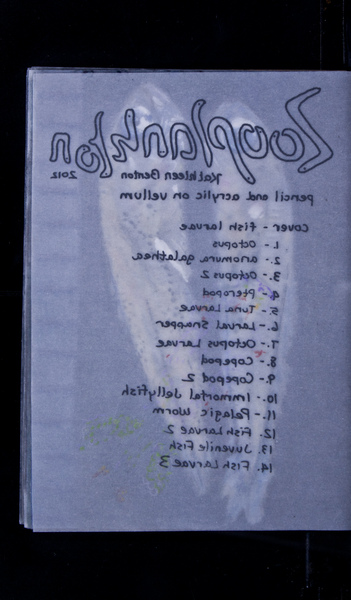 Zooplankton
Kathleen Benton 2012
pencil and acrylic on vellum
cover - fish larvae
1. - Octopus
2. - anomura galathea
3. - Octopus 2
4. - Pteropod
5. - Tuna Larvae
6. - Larval Snapper
7. - Octopus Larvae
8. - Copepod
9. - Copepod 2
10. - Immortal Jellyfish
11. - Pelagic Worm
12. Fish Larvae 2
13. Juvenile Fish
14. Fish Larvae 3